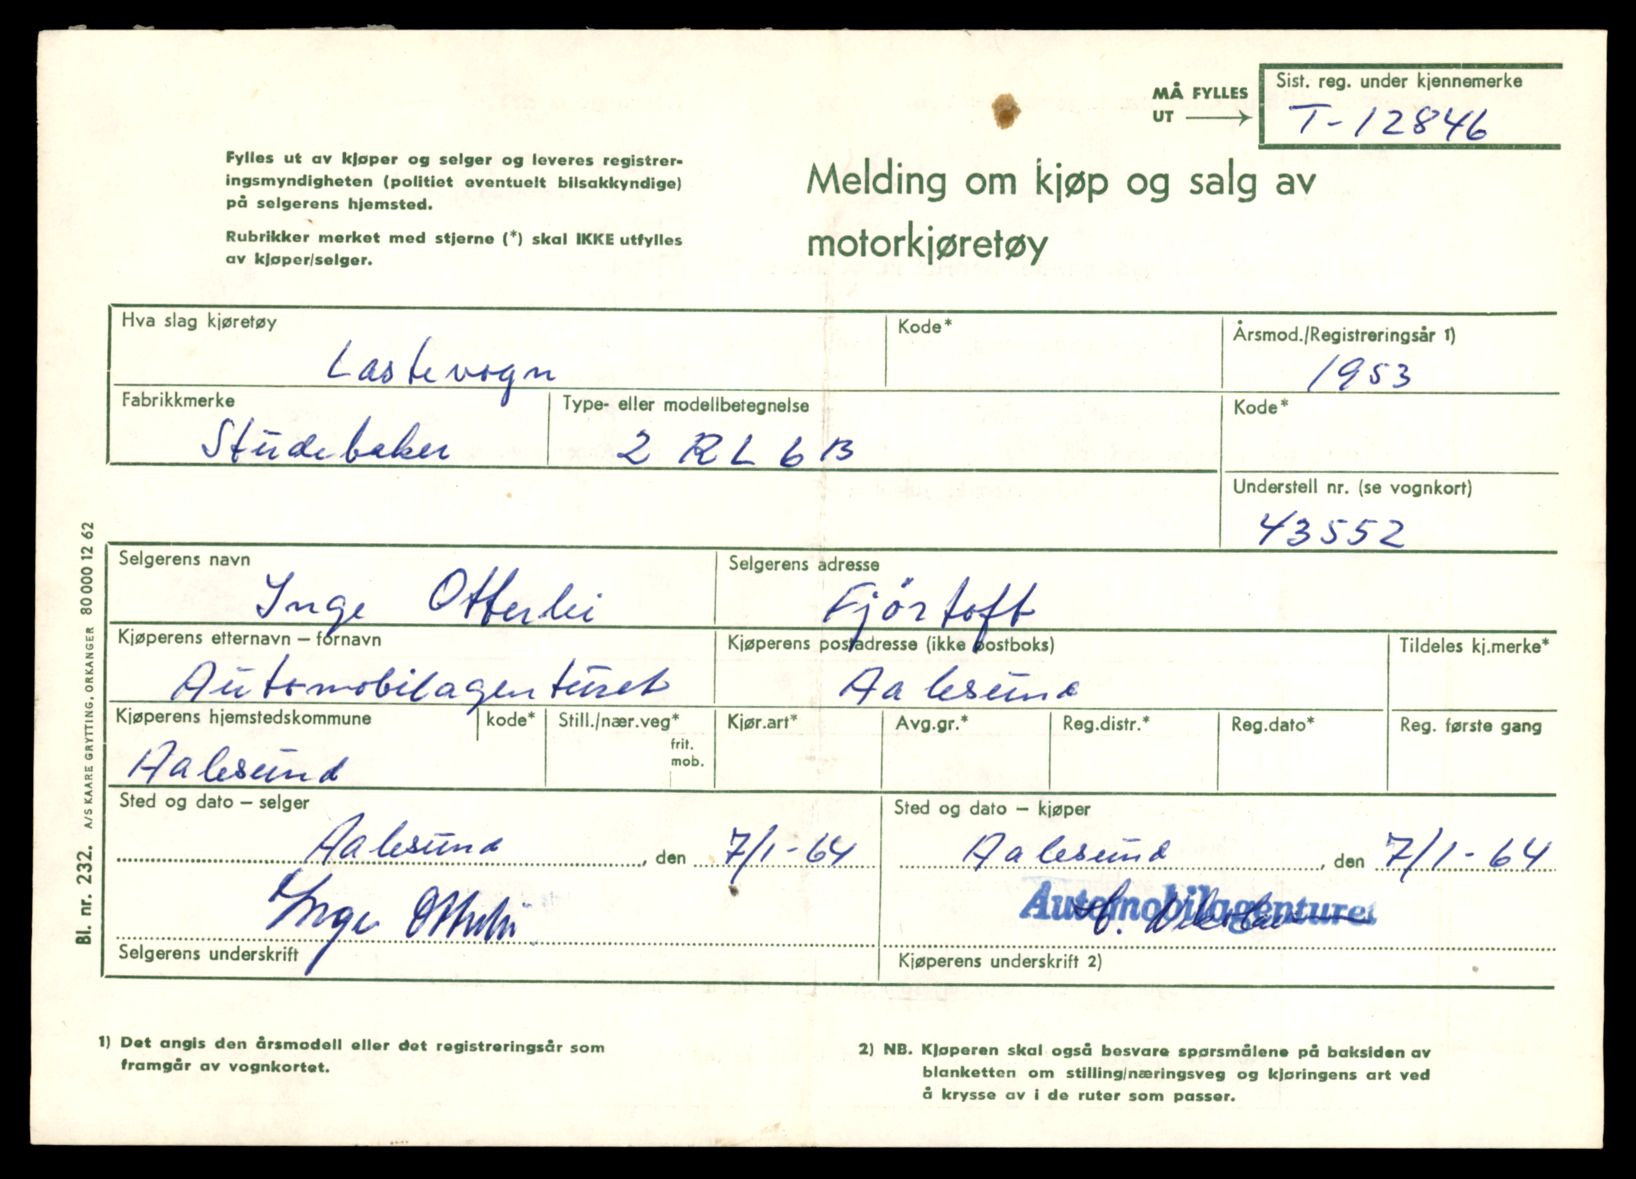 MÅ FYLLES
UT
Sist. reg. under kjennemerke
T-12846
Fylles ut av kjøper og selger og leveres registrer-
ingsmyndigheten (politiet eventuelt bilsakkyndige)
på selgerens hjemsted.
Rubrikker merket med stjerne (*) skal IKKE utfylles
av kjøper/selger.
Melding om kjøp og salg av
motorkjøretøy
Hva slag kjøretøy
Lastevogn
Kode*
Årsmod./Registreringsår 1)
1953
Fabrikkmerke
Studebaker
Type- eller modellbetegnelse
2 RL 6 B
Kode*
Understell nr. (se vognkort)
43552
Selgerens navn
Inge Otterlei
Selgerens adresse
Fjörtoft
Kjøperens etternavn – fornavn
Automobilagenturet
Kjøperens postadresse (ikke postboks)
Aalesund
Tildeles kj.merke*
Kjøperens hjemstedskommune
Aalesund
kode*
Still./nær.veg*
frit.
mob.
Kjør.art*
Avg.gr.*
Reg.distr.*
Reg.dato*
Reg. første gang
Sted og dato – selger
Aalesund, den 7/1-64
Inge Otterlei
Selgerens underskrift
Sted og dato – kjøper
Aalesund, den 7/1-64
Automobilagenturet
Kjøperens underskrift 2)
1) Det angis den årsmodell eller det registreringsår som
framgår av vognkortet.
2) NB. Kjøperen skal også besvare spørsmålene på baksiden av
blanketten om stilling/næringsveg og kjøringens art ved
å krysse av i de ruter som passer.
Bl. nr. 232. A/S KAARE GRYTTING, ORKANGER 80000 12 62